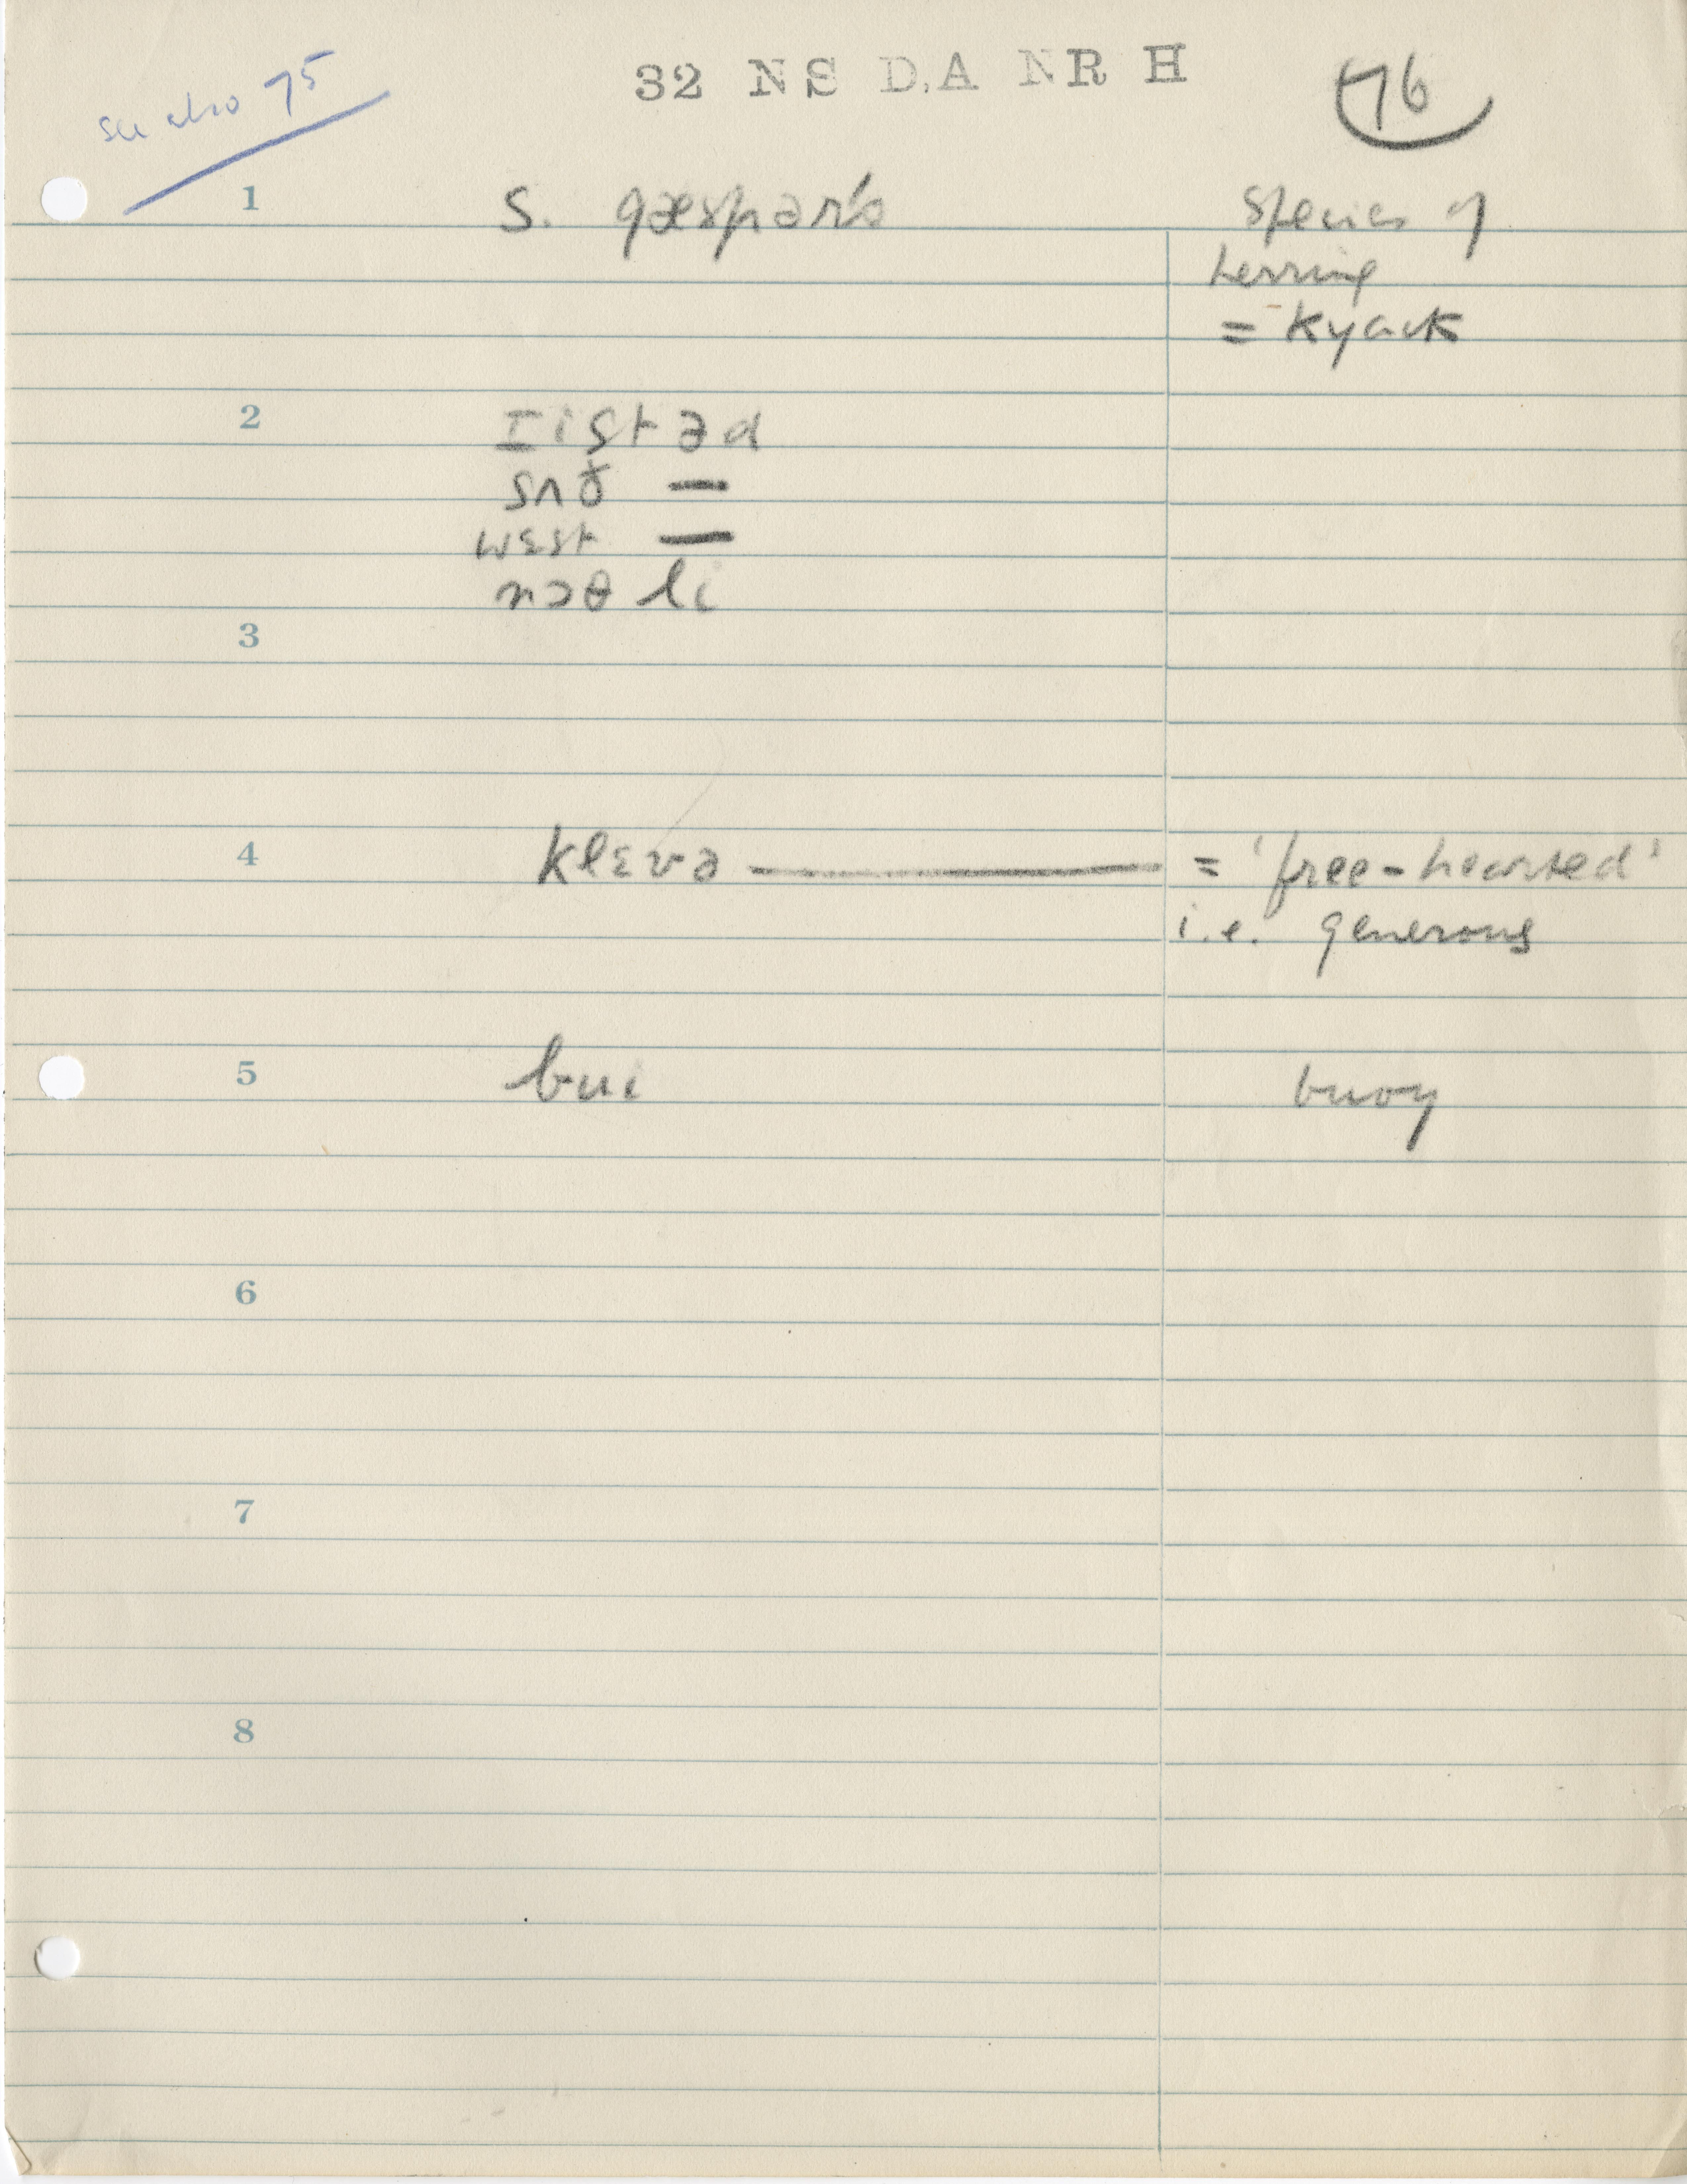 see also 75
32 NS D.A NR H
76
1 S. gæspəro Species of
herring
= Kyack
2 I iʂtəd
sʌð —
wɛst —
nɔθ li
3
4 klɛvə — = 'free-hearted'
i.e. generous
5 bui buoy
6
7
8